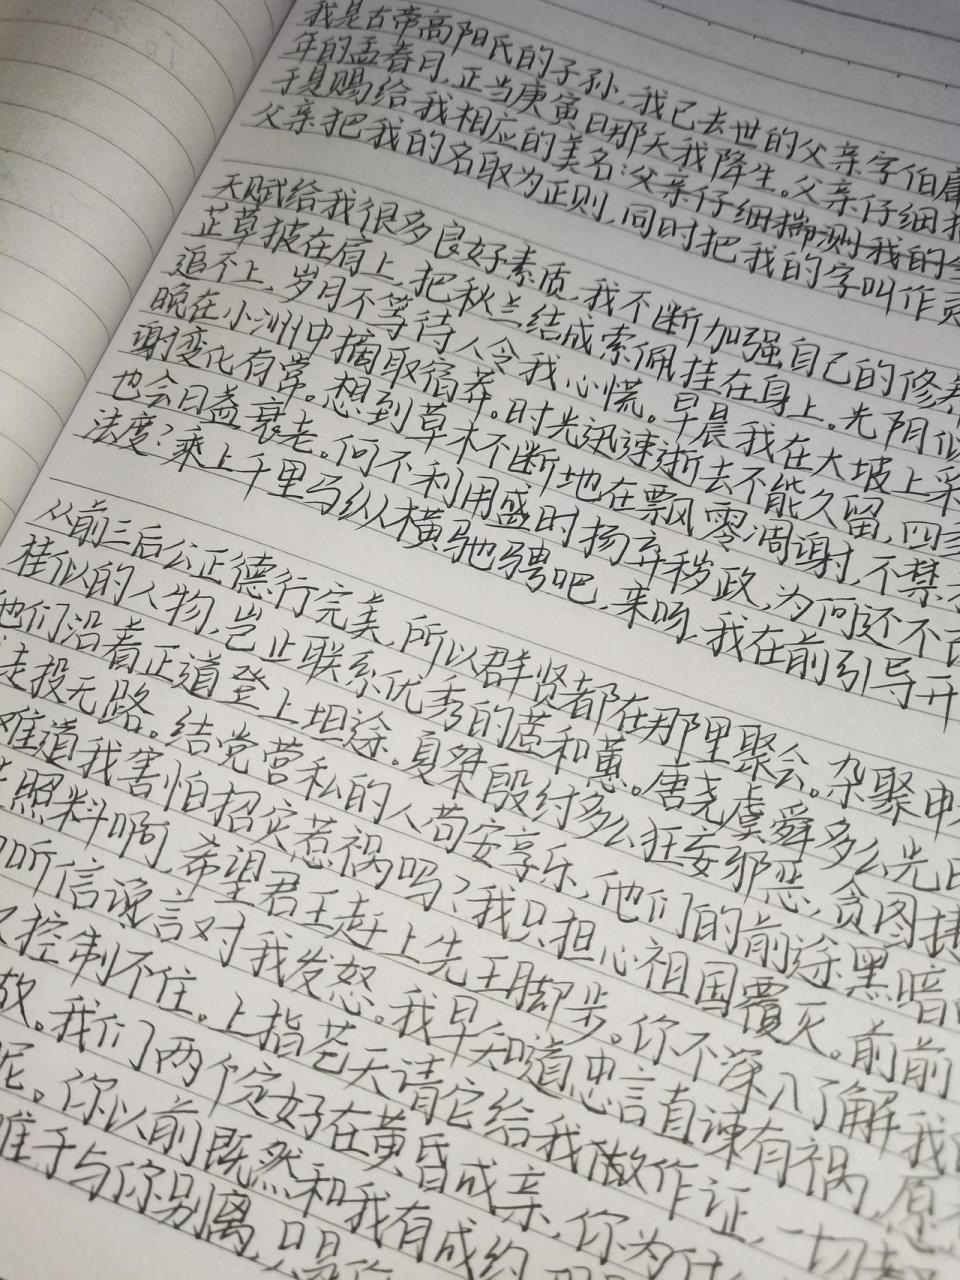 我是古帝高阳氏的子孙,我已去世的父亲字伯庸
年的孟春月,正当庚寅日那天我降生。父亲仔细揣测我的
于是赐给我相应的美名:父亲仔细
父亲把我的名取为正则,同时把我的字叫作灵
天赋给我很多良好素质,我不断加强自己的修养
芷草披在肩上,把秋兰结成索佩挂在身上。光阴似
追不上,岁月不等待人令我心慌。早晨我在大坡上采
晚在小洲中摘取宿莽。时光迅速逝去不能久留,四季
谢变化有常。想到草木不断地在飘零凋谢,不禁
也会日益衰老。何不利用盛时扬弃秽政,为何还不
法度?乘上千里马纵横驰骋吧,来呀,我在前引导开
从前三后公正德行完美,所以群贤都在那里聚会。杂聚申
桂似的人物,岂止联系优秀的茝和蕙。唐尧虞舜多么光
他们沿着正道登上坦途。夏桀殷纣多么狂妄邪恶,贪图捷
走投无路。结党营私的人苟安享乐,他们的前途黑暗
难道我害怕招灾惹祸吗?我只担心祖国覆灭。前前
照料啊,希望君王赶上先王脚步。你不深入了解我
听信谗言对我发怒。我早知道忠言直谏有祸,原
控制不住。上指苍天请它给我做作证,一切都
故。我们两个定好在黄昏成亲,你为什
呢。你以前既然和我有成约
难于与你别离,只是